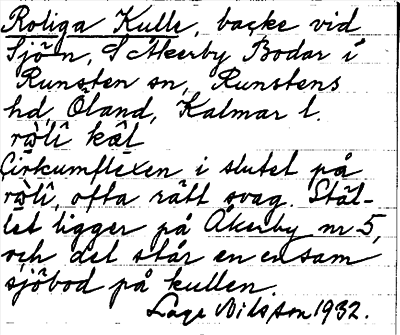 Roliga Kulle, backe vid
Sjön, S Åkerby Bodar i
Runsten sn, Runstens
hd, Öland, Kalmar l.
rɷ̀lî kàl
Cirkumflexen i slutet på
rɷ̀lî, ofta rätt svag. Stäl-
let ligger på Åkerby nr 5,
och det står en ensam
sjöbod på kullen.
Lage Nilsson 1932.